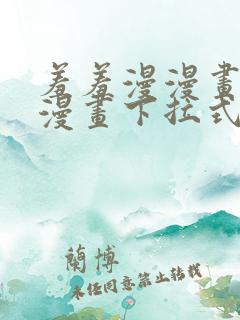 羞羞漫漫畫
漫畫下拉式
蘭博
未经同意禁止转载